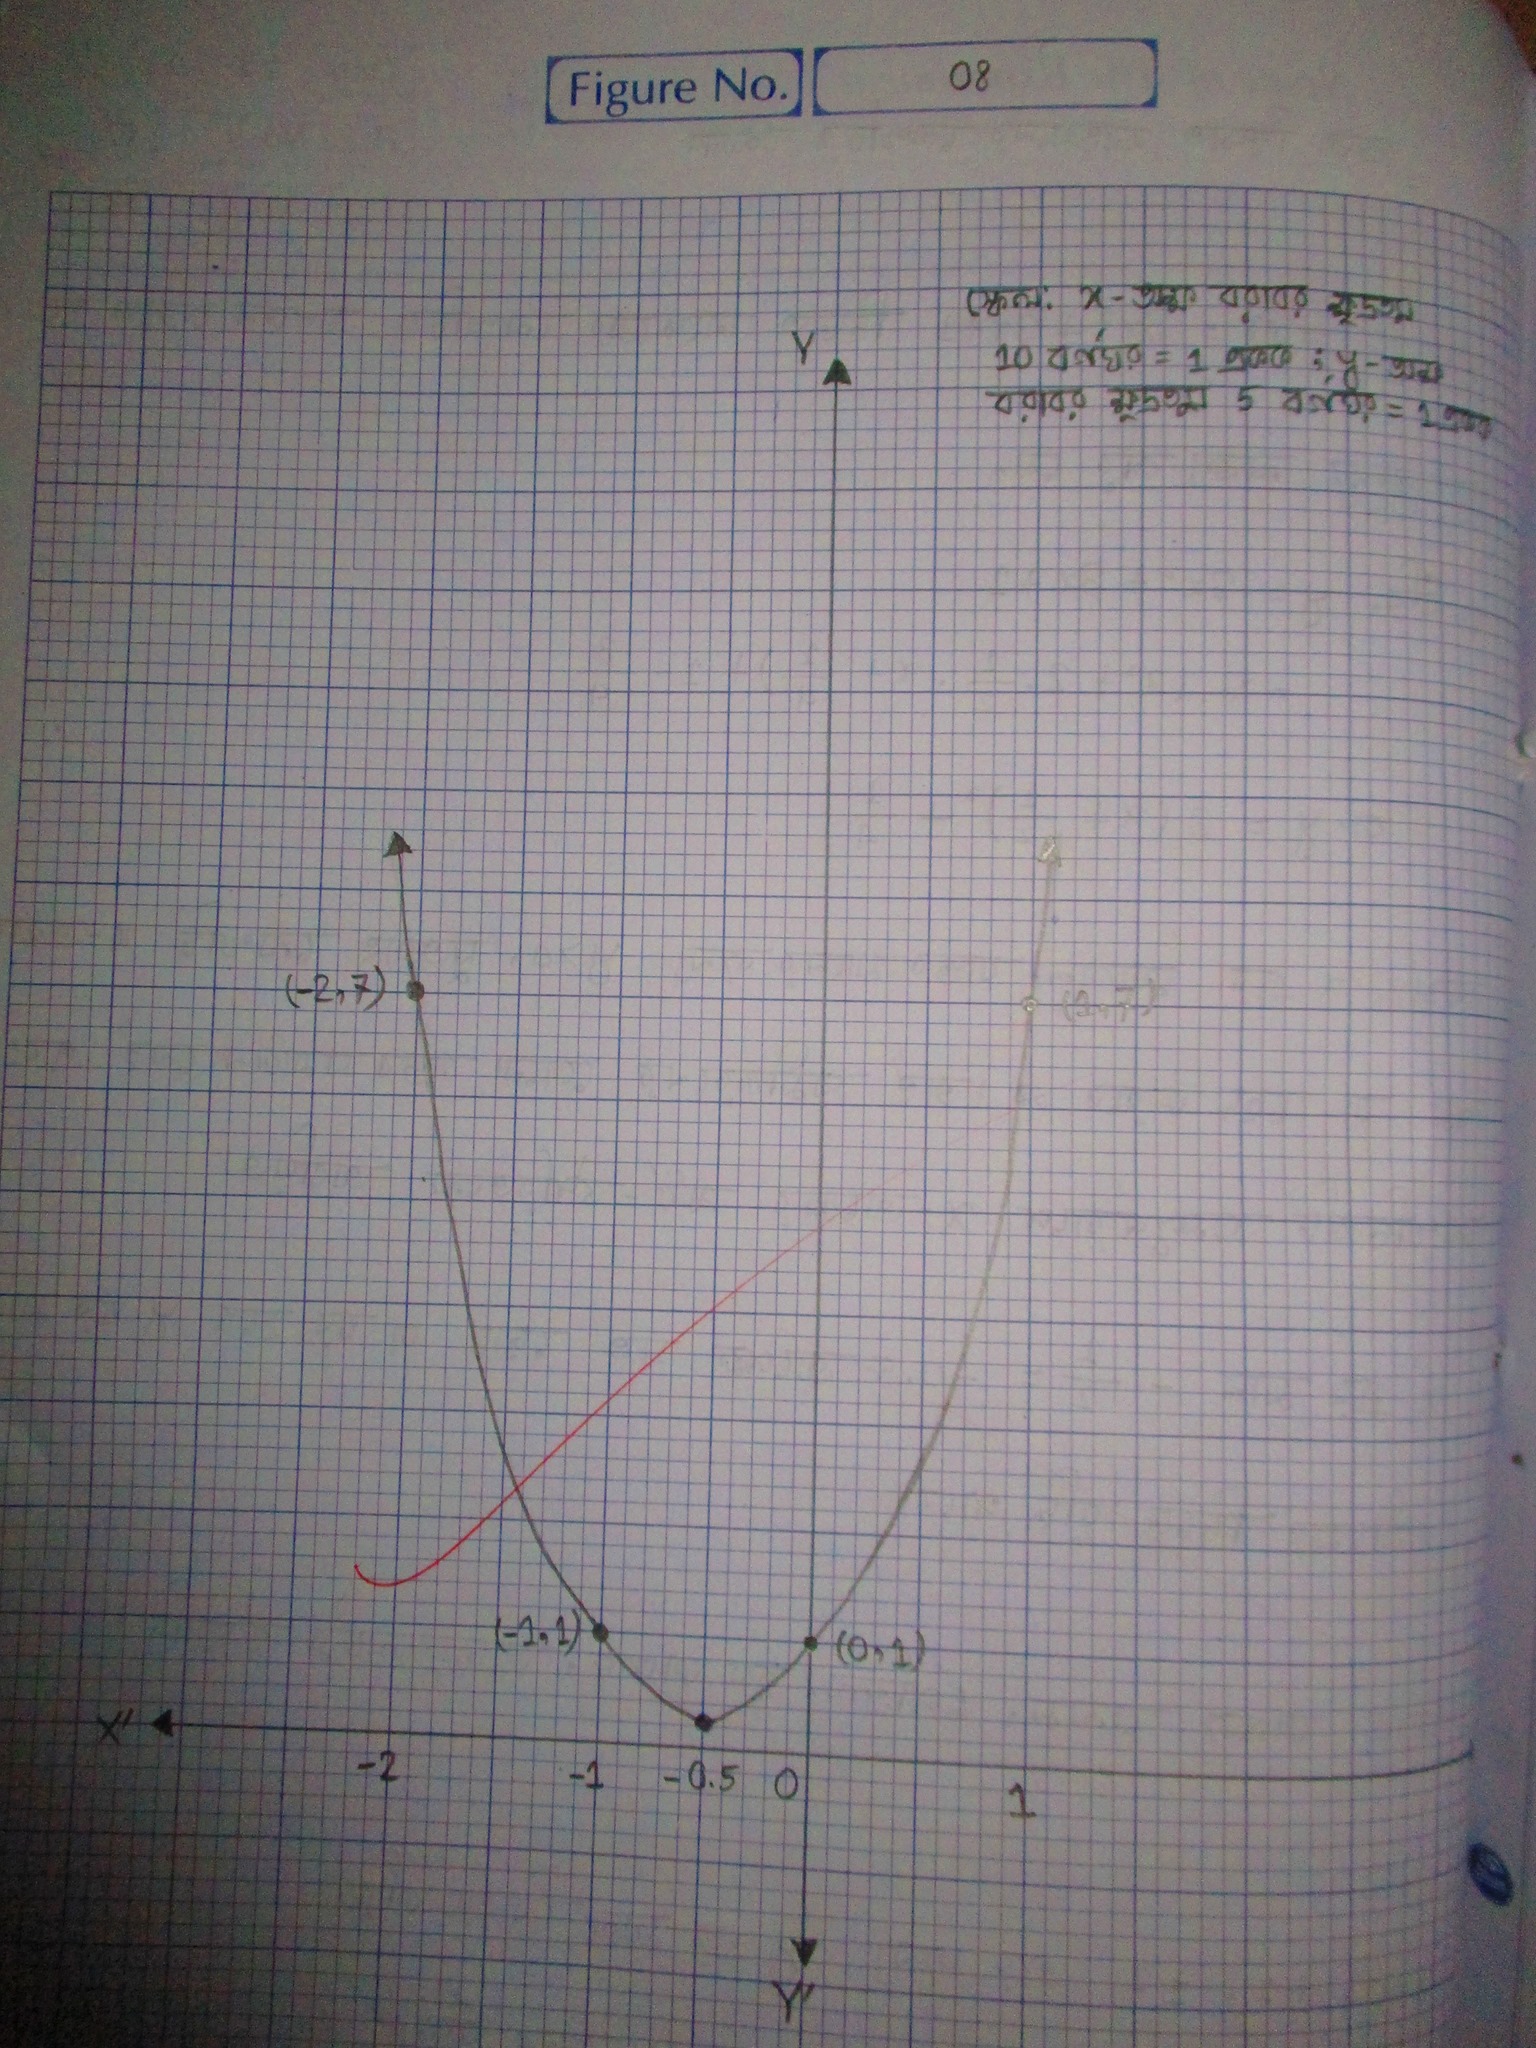 Figure No. 08
স্কেল: x-অক্ষ বরাবর ক্ষুদ্রতম
10 বর্গঘর = 1 একক ; y-অক্ষ
বরাবর ক্ষুদ্রতম 5 বর্গঘর = 1 একক
Y
(-2,7)
(-1,1) (0,1)
X'
-2 -1 -0.5 0 1
Y'